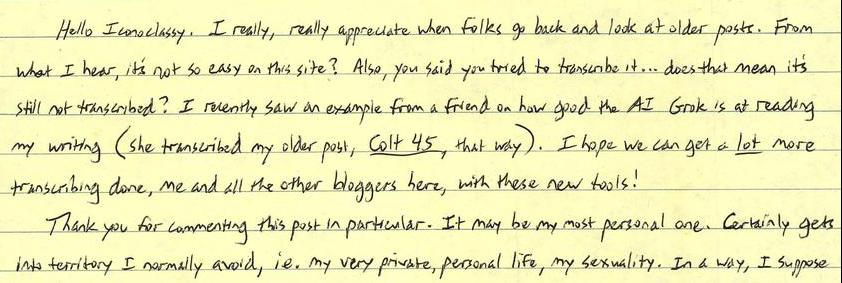 Hello Iconoclassy. I really, really appreciate when folks go back and look at older posts. From
what I hear, it's not so easy on this site? Also, you said you tried to transcribe it... does that mean it's
still not transcribed? I recently saw an example from a friend on how good the AI Grok is at reading
my writing (she transcribed my older post, Colt 45, that way). I hope we can get a lot more
transcribing done, me and all the other bloggers here, with these new tools!
Thank you for commenting this post in particular. It may be my most personal one. Certainly gets
into territory I normally avoid, i.e. my very private, personal life, my sexuality. In a way, I suppose